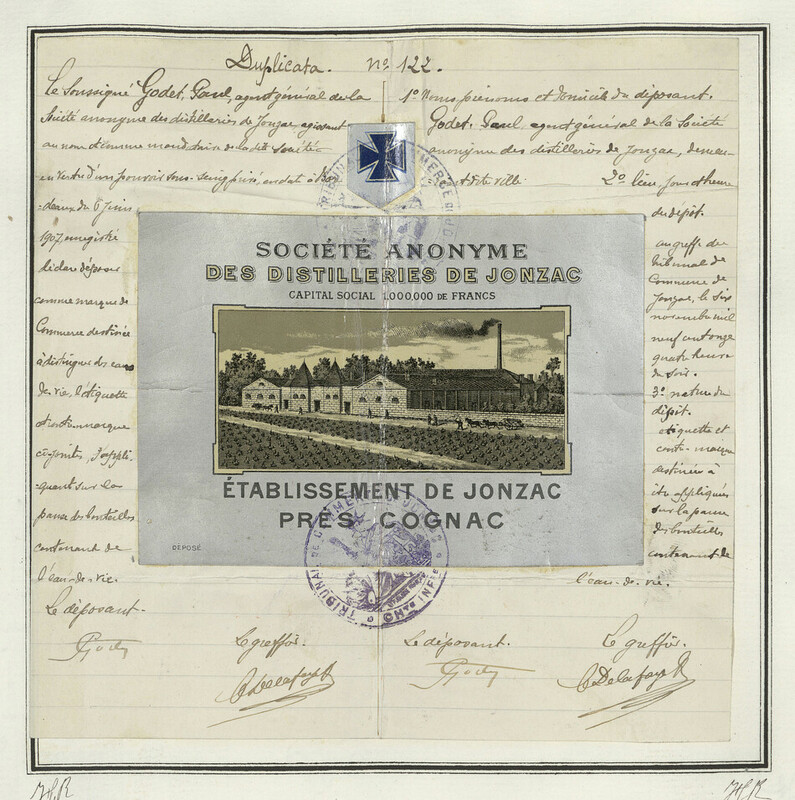 Duplicata. N° 122.
Le Soussigné Godet, Paul, agent général de la
Société anonyme des distilleries de Jonzac, agissant
au nom et comme mandataire de la dite Société
en vertu d'un pouvoir sous-seing privé, en date à Bor
-deaux du 6 Juin
1907, enregistré
déclare déposer
comme marque de
Commerce destinée
à distinguer des eaux
de vie, l'étiquette
et contre-marque
ci-jointes, s'appli-
-quant sur la
panse des bouteilles
contenant de
l'eau-de-vie.
Le déposant.
Godet
Le greffier.
Delafaye
1° Noms prénoms et domicile du déposant.
Godet, Paul, agent général de la Société
anonyme des distilleries de Jonzac, demeu-
dite ville. 2° lieu, jour et heure
du dépôt.
au greffe du
tribunal de
Commerce de
Jonzac, le six
novembre mil
neuf cent onze
quatre heures
du soir.
3° nature du
dépôt.
étiquette et
contre-marque
destinées à
être appliquées
sur la panse
des bouteilles
contenant de
l'eau-de-vie.
Le déposant.
Godet
Le greffier.
Delafaye
SOCIÉTÉ ANONYME
DES DISTILLERIES DE JONZAC
CAPITAL SOCIAL 1.000.000 DE FRANCS
ÉTABLISSEMENT DE JONZAC
PRÈS COGNAC
DÉPOSÉ
TRIBUNAL DE COMMERCE DE JONZAC
CHte INFre